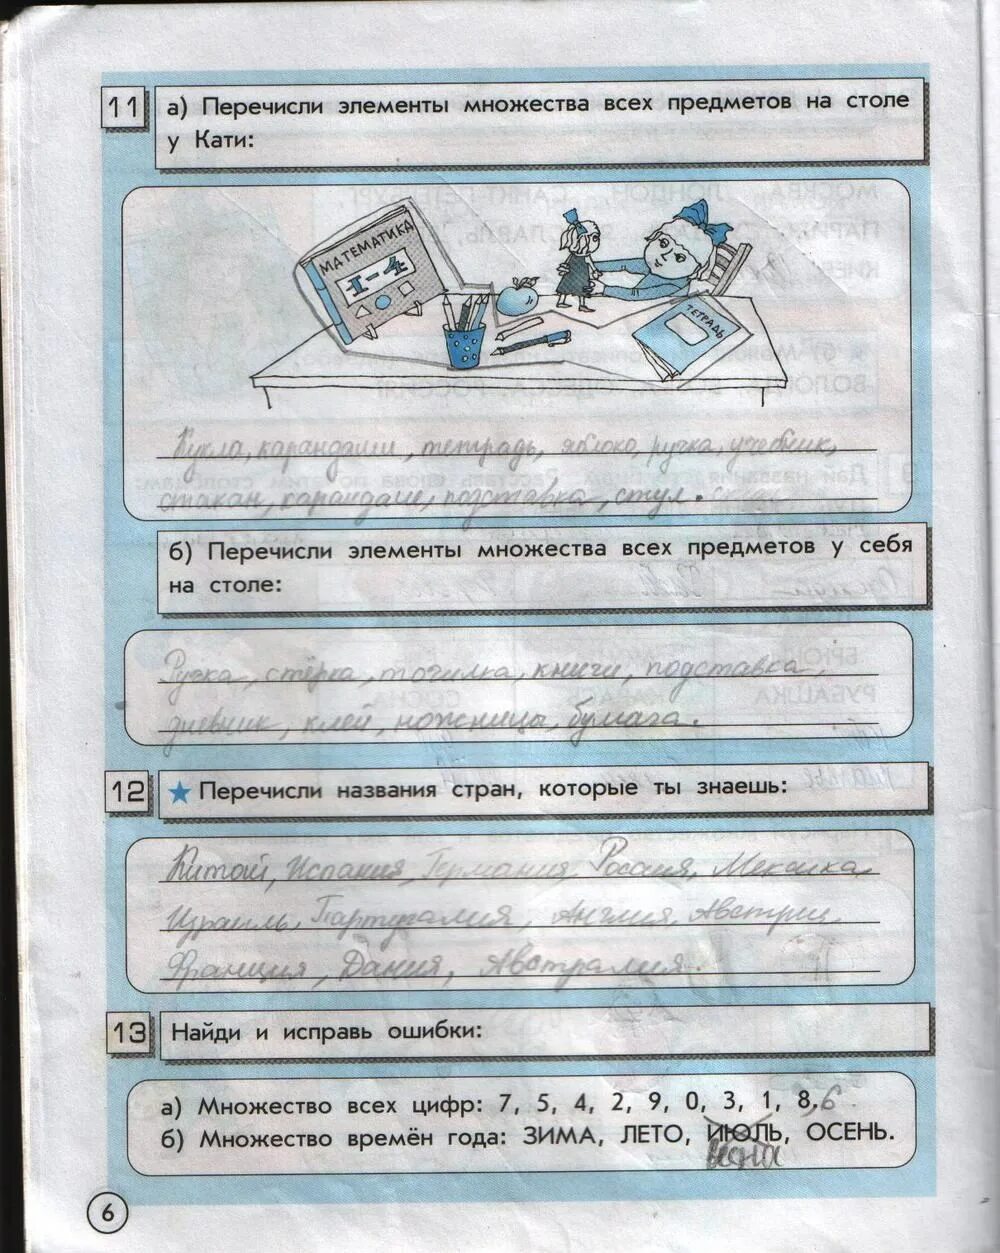 11 а) Перечисли элементы множества всех предметов на столе
у Кати:
МАТЕМАТИКА
1-4
ТЕТРАДЬ
Кукла, карандаши, тетрадь, яблоко, ручка, учебник,
стакан, карандаш, подставка, стул.
б) Перечисли элементы множества всех предметов у себя
на столе:
Ручка, стёрка, точилка, книги, подставка,
дневник, клей, ножницы, бумага.
12 ★ Перечисли названия стран, которые ты знаешь:
Китай, Испания, Германия, Россия, Мексика,
Израиль, Партугалия, Англия, Австрия,
Франция, Дания, Австралия.
13 Найди и исправь ошибки:
а) Множество всех цифр: 7, 5, 4, 2, 9, 0, 3, 1, 8, 6
б) Множество времён года: ЗИМА, ЛЕТО, ИЮЛЬ, ОСЕНЬ.
весна
6